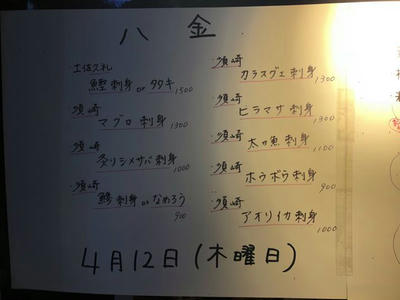 八金
土佐久礼
鰹刺身 or タタキ 1500
須崎
マグロ刺身 1300
須崎
炙りシメサバ刺身 1000
須崎
鯵刺身 or なめろう 900
・須崎
カラスグエ刺身 1300
・須崎
ヒラマサ刺身 1300
・須崎
太刀魚刺身 1100
・須崎
ホウボウ刺身 900
・須崎
アオリイカ刺身 1000
4月12日(木曜日)